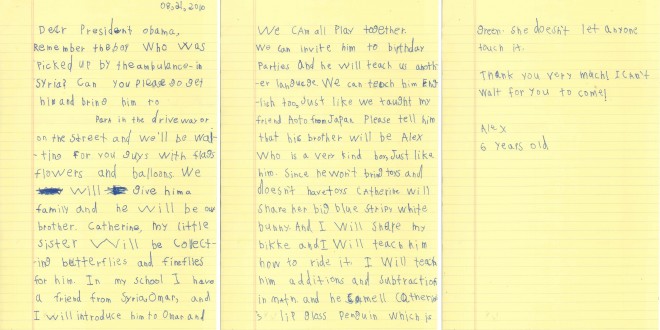 08,21,2016
Dear President obama,
Remember the boy who was
picked up by the ambulance in
Syria? Can you please go get
him and bring him to
Park in the driveway or
on the street and we'll be wai-
-ting for you guys with flags
flowers and balloons. We
will give him a
family and he will be our
brother. Catherine, my little
sister will be collect-
ing butterflies and fireflies
for him. In my school I have
a friend from Syria, Omar, and
I will introduce him to Omar and
We CAn all play together.
We can invite him to birthday
parties and he will teach us anoth-
-er language. We can teach him Eng
-lish too, Just like we taught my
friend Aoto from Japan. Please tell him
that his brother will be Alex
who is a very kind boy, Just like
him. Since he won't bring toys and
doesn't have toys Catherine will
share her big blue stripy white
bunny. And I will share my
bikke and I will teach him
how to ride it. I will teach
him additions and subtractions
in math. and he smell Catherine
's lip glass penguin which is
green. She doesn't let anyone
touch it.
Thank you very mach! I can't
wait for you to come!
Alex
6 years old